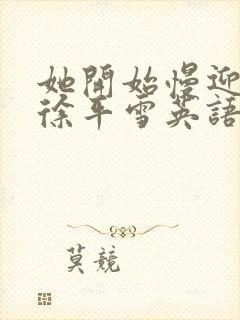 她開始慢迎
徐年雪英語
莫競